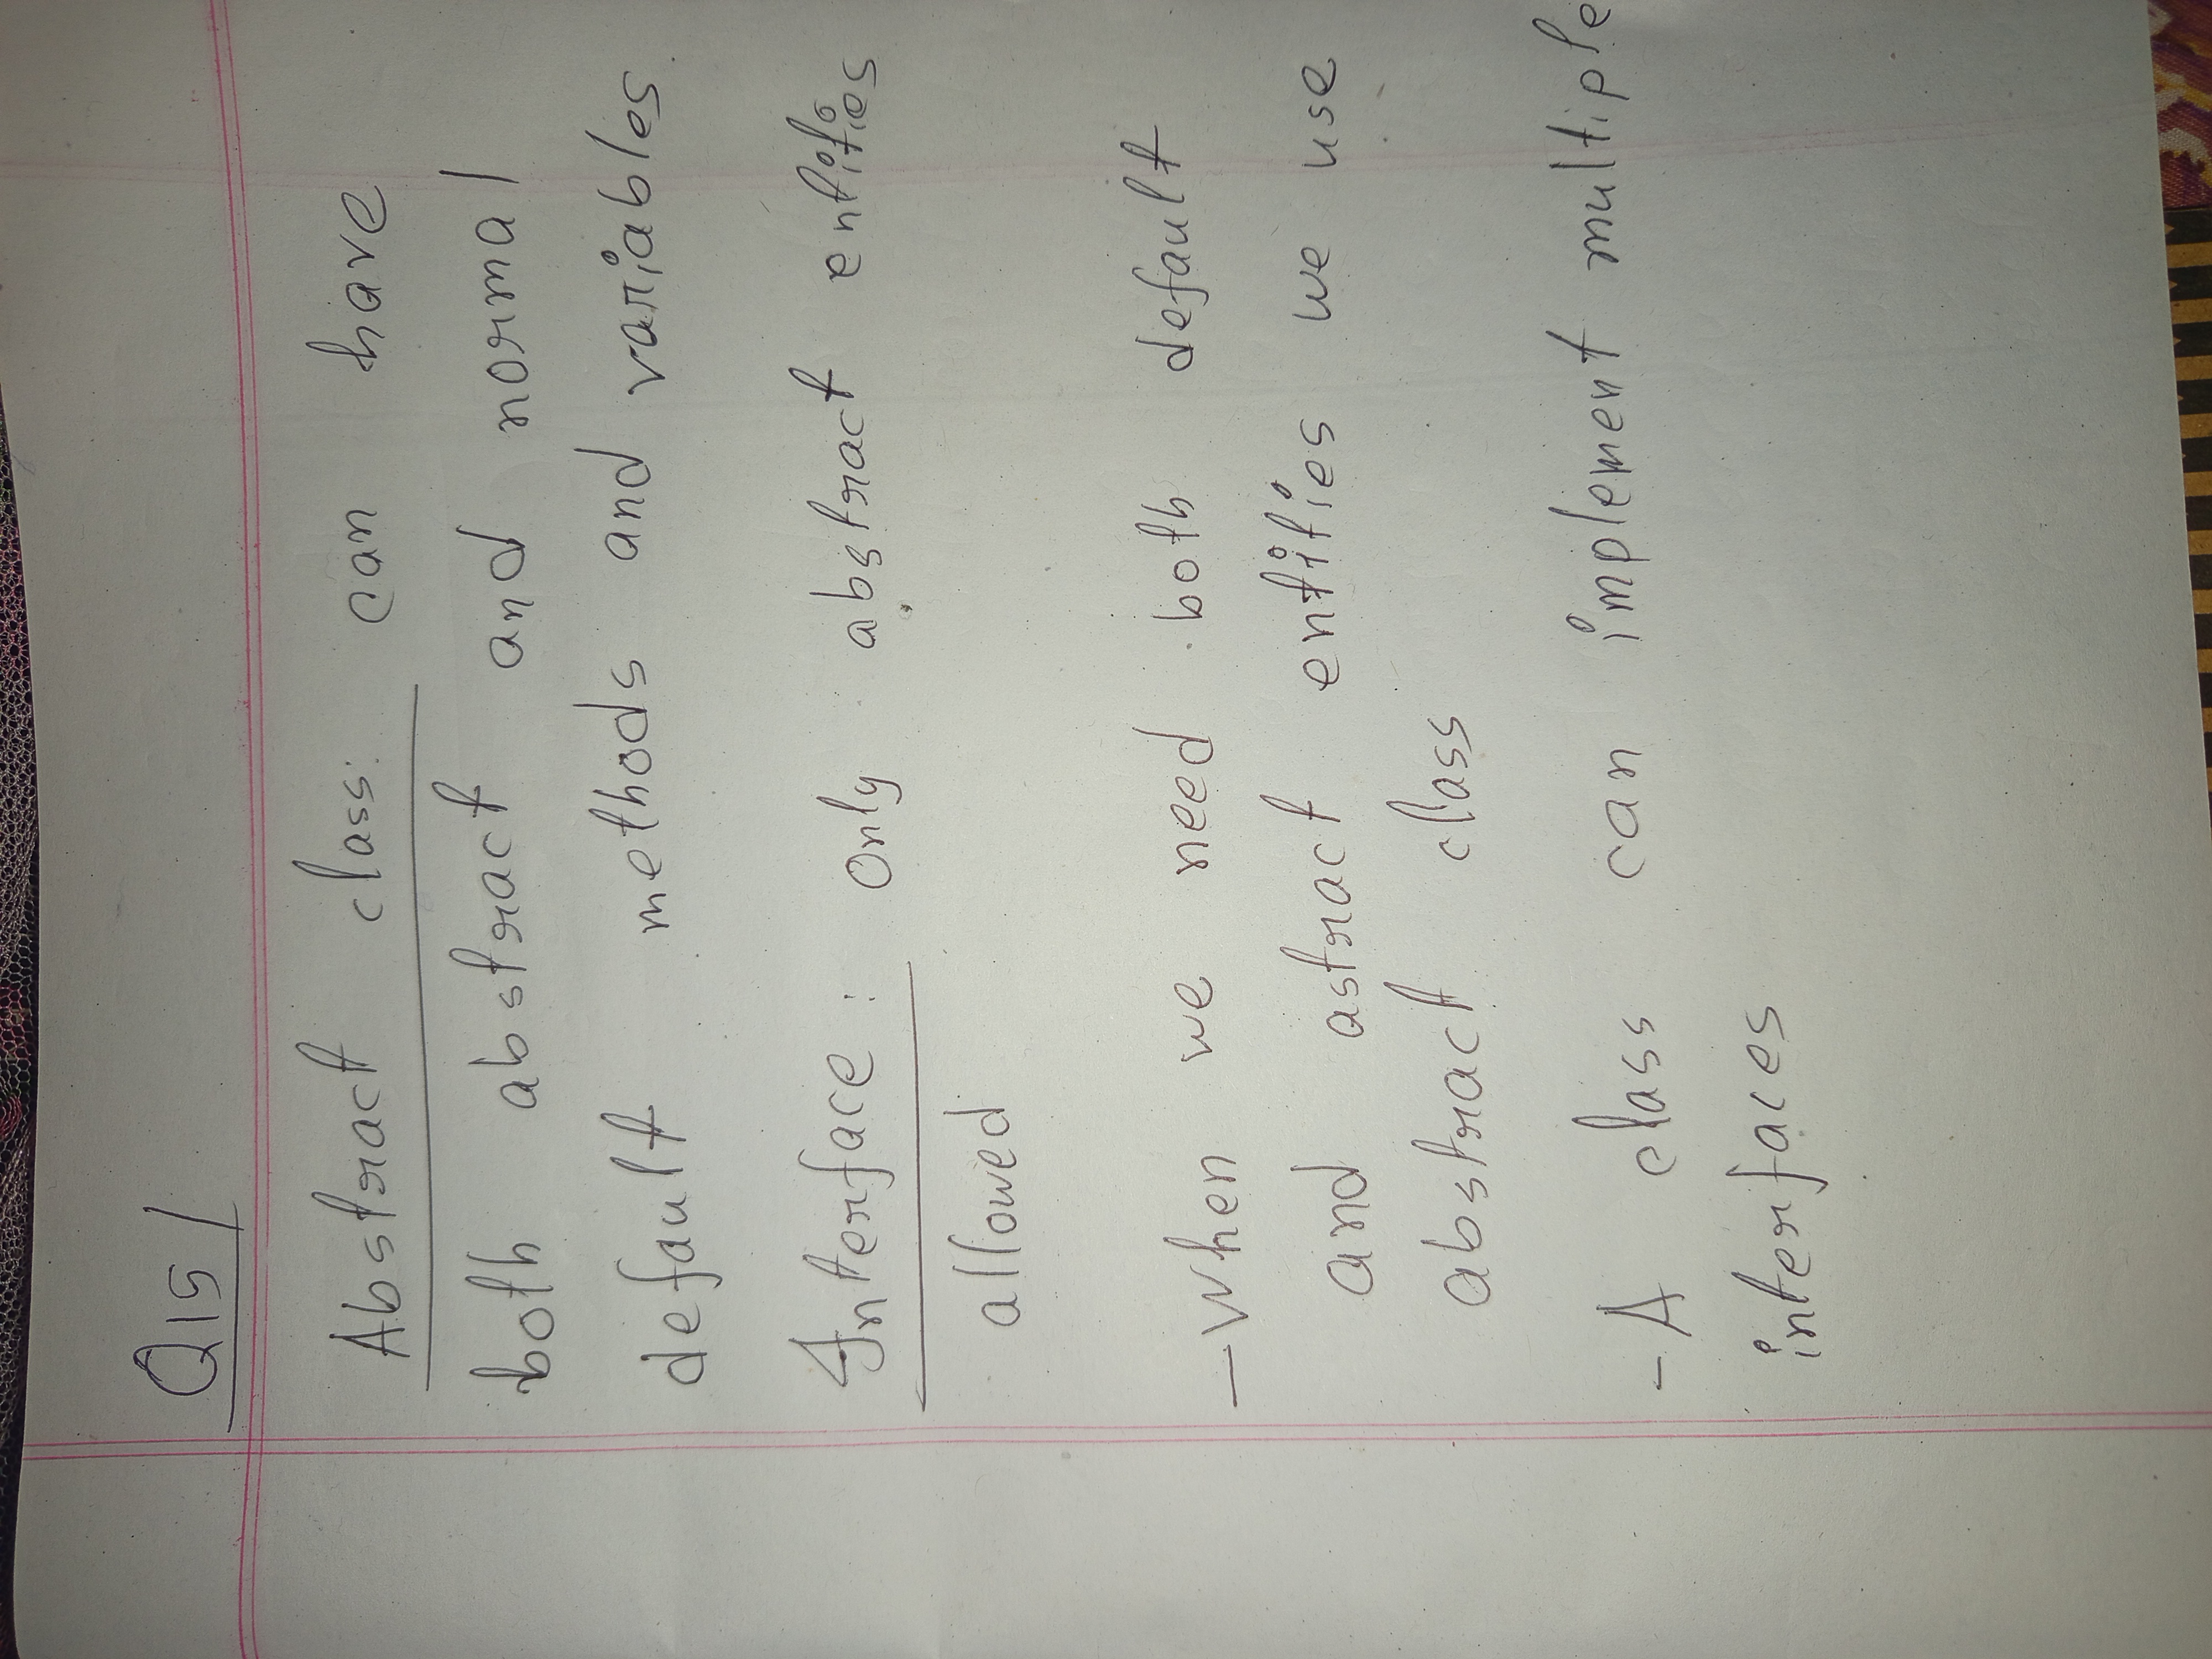 Q15/
Abstract class: can have
both abstract and normal
default methods and variables.
Interface: Only abstract entities
allowed
-When we need both default
and astract entities we use
abstract class
-A class can implement multiple
interfaces